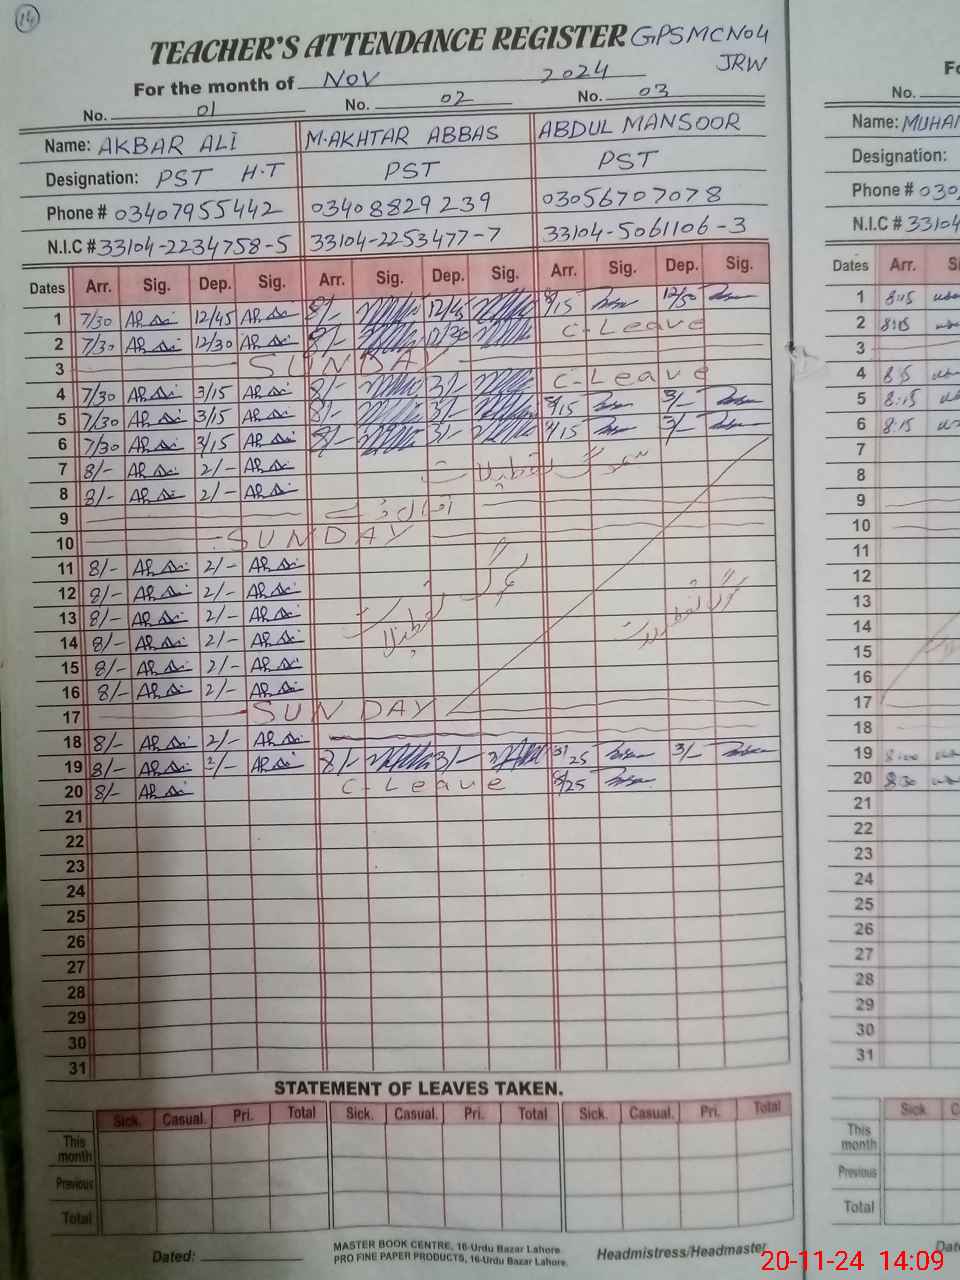 14
TEACHER'S ATTENDANCE REGISTER GPSMCNO4
JRW
For the month of NOV 2024
No. 01 No. 02 No. 03
Name: AKBAR ALI M.AKHTAR ABBAS ABDUL MANSOOR
Designation: PST H.T PST PST
Phone # 03407955442 03408829239 03056707078
N.I.C # 33104-2234758-5 33104-2253477-7 33104-5061106-3
Dates Arr. Sig. Dep. Sig. Arr. Sig. Dep. Sig. Arr. Sig. Dep. Sig.
1 7/30 12/45 8/- 12/45 8/15 12/30
2 7/30 12/30 8/- 12/30 C-Leave
3 SUNDAY
4 7/30 3/15 8/- 3/- C-Leave
5 7/30 3/15 8/- 3/- 8/15 3/-
6 7/30 3/15 8/- 3/- 8/15 3/-
7 8/- 2/-
8 8/- 2/-
9
10 SUNDAY
11 8/- 2/-
12 8/- 2/-
13 8/- 2/-
14 8/- 2/-
15 8/- 2/-
16 8/- 2/-
17 SUNDAY
18 8/- 2/-
19 8/- 2/- 8/- 3/- 3/-
20 8/- C-Leave 8/25
21
22
23
24
25
26
27
28
29
30
31
STATEMENT OF LEAVES TAKEN.
Sick. Casual. Pri. Total Sick. Casual. Pri. Total Sick. Casual. Pri. Total
This month
Previous
Total
Dated:
MASTER BOOK CENTRE, 16-Urdu Bazar Lahore.
PRO FINE PAPER PRODUCTS, 16-Urdu Bazar Lahore.
Headmistress/Headmaster
No.
Name: MUHAM
Designation:
Phone # 030
N.I.C # 33104
Dates Arr.
1 8:15
2 8:15
3
4
5 8:15
6 8:15
7
8
9
10
11
12
13
14
15
16
17
18
19 8:00
20 8:30
21
22
23
24
25
26
27
28
29
30
31
Sick
This month
Previous
Total
20-11-24 14:09